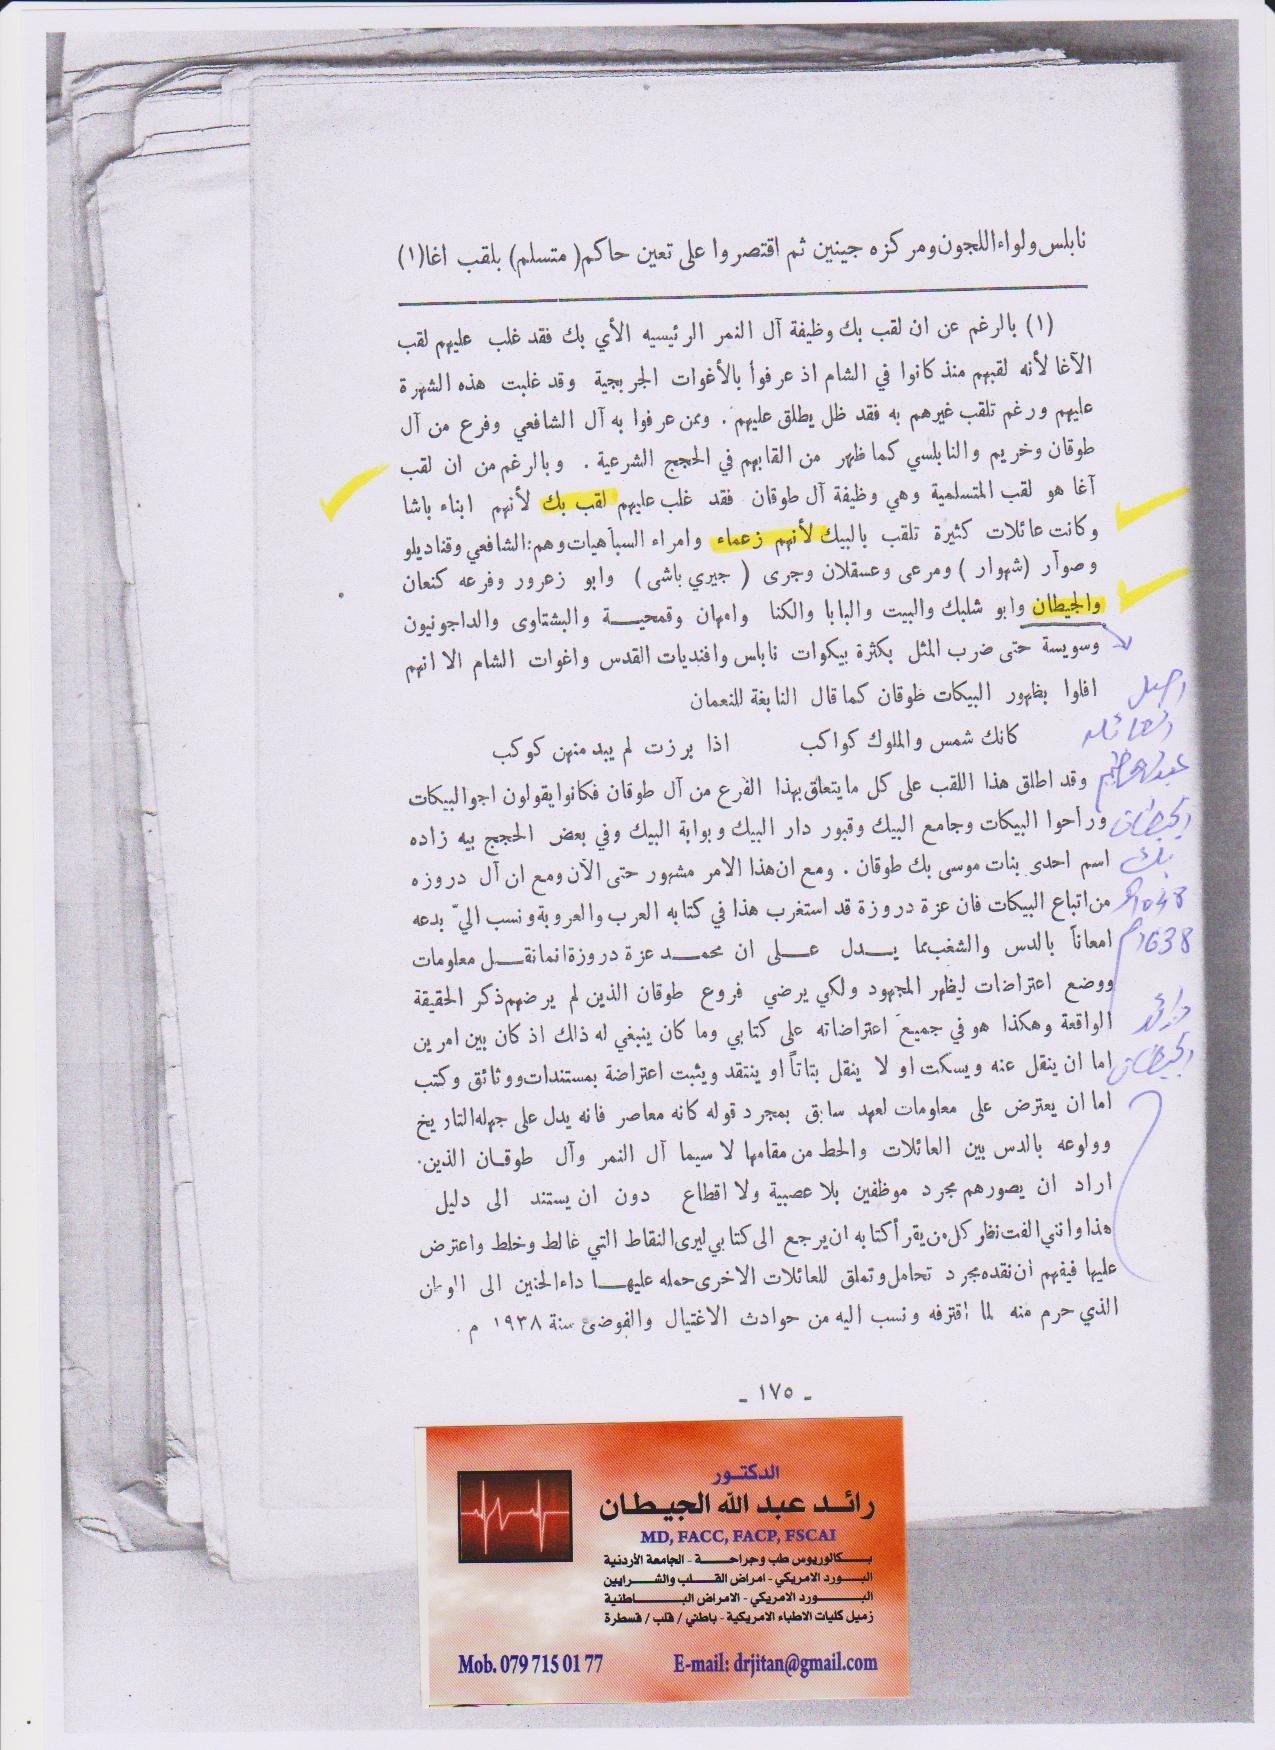 نابلس ولواء اللجون ومركزه جينين ثم اقتصروا على تعين حاكم (متسلم) بلقب اغا (١)
(١) بالرغم عن ان لقب بك وظيفة آل النمر الرئيسيه الأي بك فقد غلب عليهم لقب
الآغا لأنه لقبهم منذ كانوا في الشام اذ عرفوا بالأغوات الجربجية وقد غلبت هذه الشهرة
عليهم ورغم تلقب غيرهم به فقد ظل يطلق عليهم . وممن عرفوا به آل الشافعي وفرع من آل
طوقان وخريم والنابلسي كما ظهر من القابهم في الحجج الشرعية . وبالرغم من ان لقب
آغا هو لقب المتسلمية وهي وظيفة آل طوقان فقد غلب عليهم لقب بك لأنهم ابناء باشا
وكانت عائلات كثيرة تلقب بالبيك لأنهم زعماء وامراء السباهيات وهم : الشافعي وقناديلو
وصوآر (شهوار) ومرعى وعسقلان وجرى (جيري باشى) وابو زعرور وفرعه كنعان
والجيطان وابو شلبك والبيت والبابا والكنا وامهان وقمحيـة والبشتاوى والداجونيون
وسويسة حتى ضرب المثل بكثرة بيكوات نابلس وافنديات القدس واغوات الشام الا انهم
افلوا بظهور البيكات طوقان كما قال النابغة للنعمان
كانك شمس والملوك كواكب اذا برزت لم يبد منهن كوكب
وقد اطلق هذا اللقب على كل مايتعلق بهذا الفرع من آل طوقان فكانوا يقولون اجو البيكات
ورأحوا البيكات وجامع البيك وقبور دار البيك وبوابة البيك وفي بعض الحجج بيه زاده
اسم احدى بنات موسى بك طوقان . ومع ان هذا الامر مشهور حتى الآن ومع ان آل دروزه
من اتباع البيكات فان عزة دروزة قد استغرب هذا في كتابه العرب والعروبة ونسب اليّ بدعه
امعاناً بالدس والشغب مما يـدل عـلى ان محمـد عزة دروزة انما نقـل معلومات
ووضع اعتراضات ليظهر المجهود ولكي يرضي فروع طوقان الذين لم يرضهم ذكر الحقيقة
الواقعة وهكذا هو في جميع اعتراضاته على كتابي وما كان ينبغي له ذلك اذ كان بين امرين
اما ان ينقل عنه ويسكت او لا ينقل بتاتاً او ينتقد ويثبت اعتراضة بمستندات ووثائق وكتب
اما ان يعترض على معلومات لعهد سابق بمجرد قوله كانه معاصر فانه يدل على جهله التاريخ
وولوعه بالدس بين العائلات والحط من مقامها لا سيما آل النمر وآل طوقـان الذين
اراد ان يصورهم مجرد موظفين بلا عصبية ولا اقطاع دون ان يستند الى دليل
هذا وانني الفت نظر كل من يقرأ كتابه ان يرجع الى كتابي ليرى النقاط التي غالط وخلط واعترض
عليها فيفهم ان نقده مجرد تحامل وتملق للعائلات الاخرى حمله عليهـا داء الحنين الى الوطن
الذي حرم منه لما اقترفه ونسب اليه من حوادث الاغتيال والفوضى سنة ١٩٣٨ م .
- ١٧٥ -
اصل
العائله
عبد العظيم
الجيطان
بك
1048هـ
1638م
د رائد
الجيطان
الدكتـور
رائـد عبد الله الجيـطـان
MD, FACC, FACP, FSCAI
بـكالوريوس طب وجراحـة - الجامعة الأردنية
البـورد الامريكي - امراض القـلب والشـرايين
البـورد الامريكي - الامراض البـاطنية
زميل كليات الاطباء الامريكية - باطني / قلب / قسطرة
Mob. 079 715 01 77 E-mail: drjitan@gmail.com